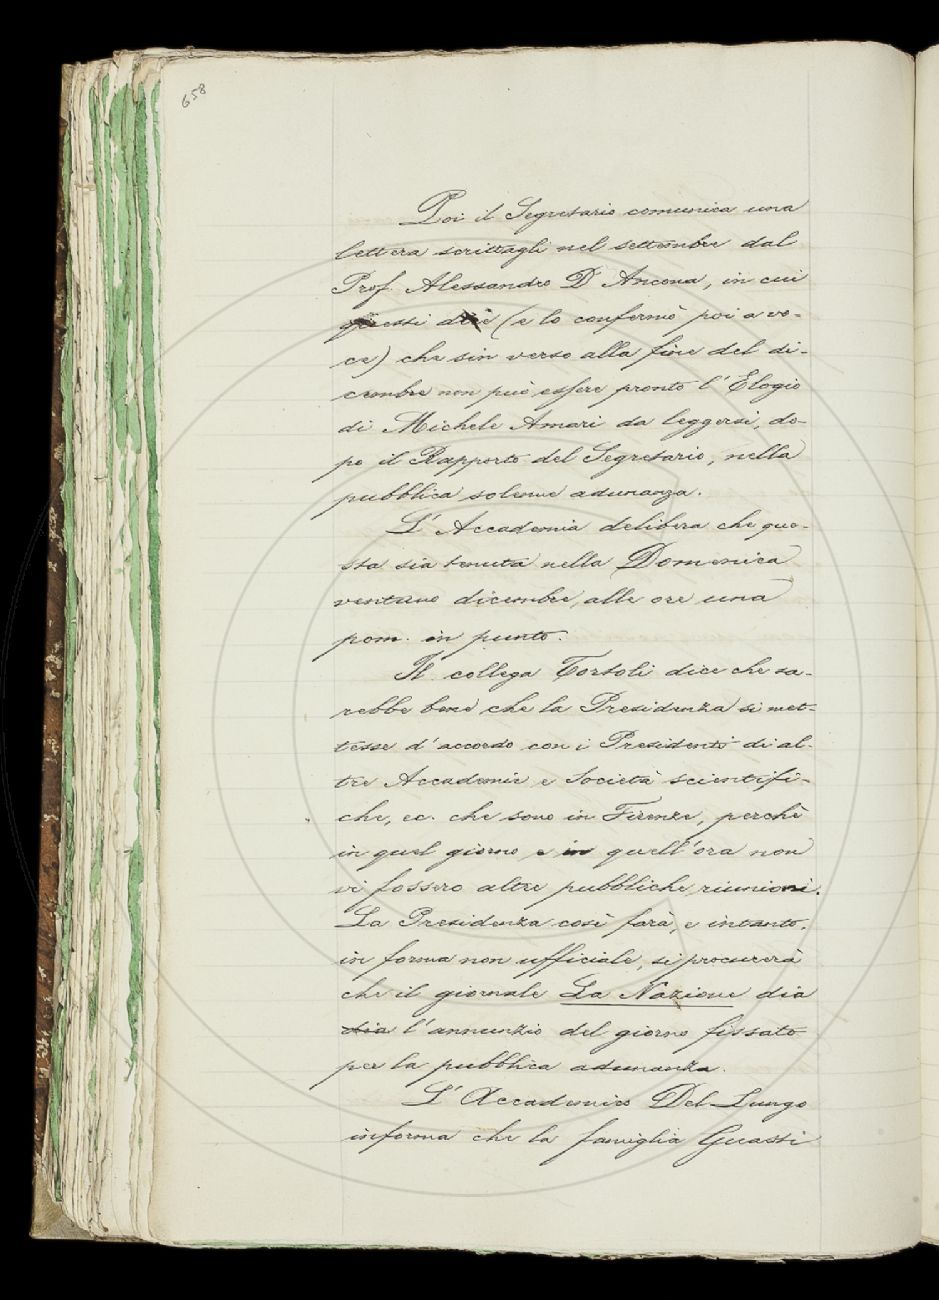 658
Poi il Segretario comunica una
lettera scrittagli nel settembre dal
Prof. Alessandro D'Ancona, in cui
questi dice (e lo confermò poi a vo-
ce) che sin verso alla fine del di-
cembre non può essere pronto l'Elogio
di Michele Amari da leggersi, do-
po il Rapporto del Segretario, nella
pubblica solenne adunanza.
L'Accademia delibera che que-
sta sia tenuta nella Domenica
ventuno dicembre, alle ore una
pom. in punto.
Il collega Tortoli dice che sa-
rebbe bene che la Presidenza si met-
tesse d'accordo con i Presidenti di al-
tre Accademie e Società scientifi-
che, ec. che sono in Firenze, perchè
in quel giorno e in quell'ora non
vi fossero altre pubbliche riunioni.
La Presidenza così farà, e intanto,
in forma non ufficiale, si procurerà
che il giornale La Nazione dia
dia l'annunzio del giorno fissato
per la pubblica adunanza.
L'Accademico Del Lungo
informa che la famiglia Guasti